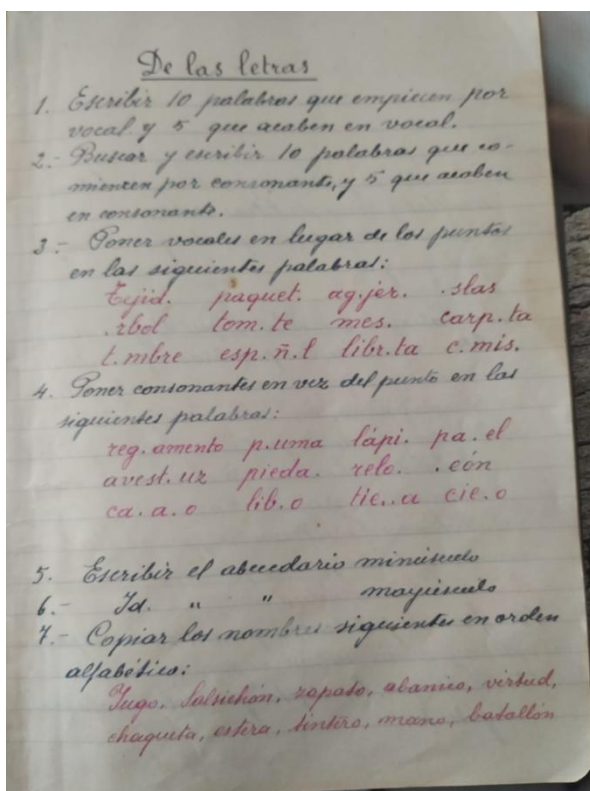 De las letras
1. Escribir 10 palabras que empiecen por
vocal y 5 que acaben en vocal.
2.- Buscar y escribir 10 palabras que co-
miencen por consonante, y 5 que acaben
en consonante.
3.- Poner vocales en lugar de los puntos
en las siguientes palabras:
Tejid. paquet. ag.jer. .slas
.rbol tom.te mes. carp.ta
t.mbre esp.ñ.l libr.ta c.mis.
4. Poner consonantes en vez del punto en las
siguientes palabras:
reg.amento p.uma lápi. pa.el
avest.uz pieda. relo. .eón
ca.a.o lib.o tie..a cie.o
5. Escribir el abecedario minúsculo
6.- Id. " " mayúsculo
7.- Copiar los nombres siguientes en orden
alfabético:
Yugo, Salsichón, zapato, abanico, virtud,
chaqueta, estera, tintero, mano, batallón